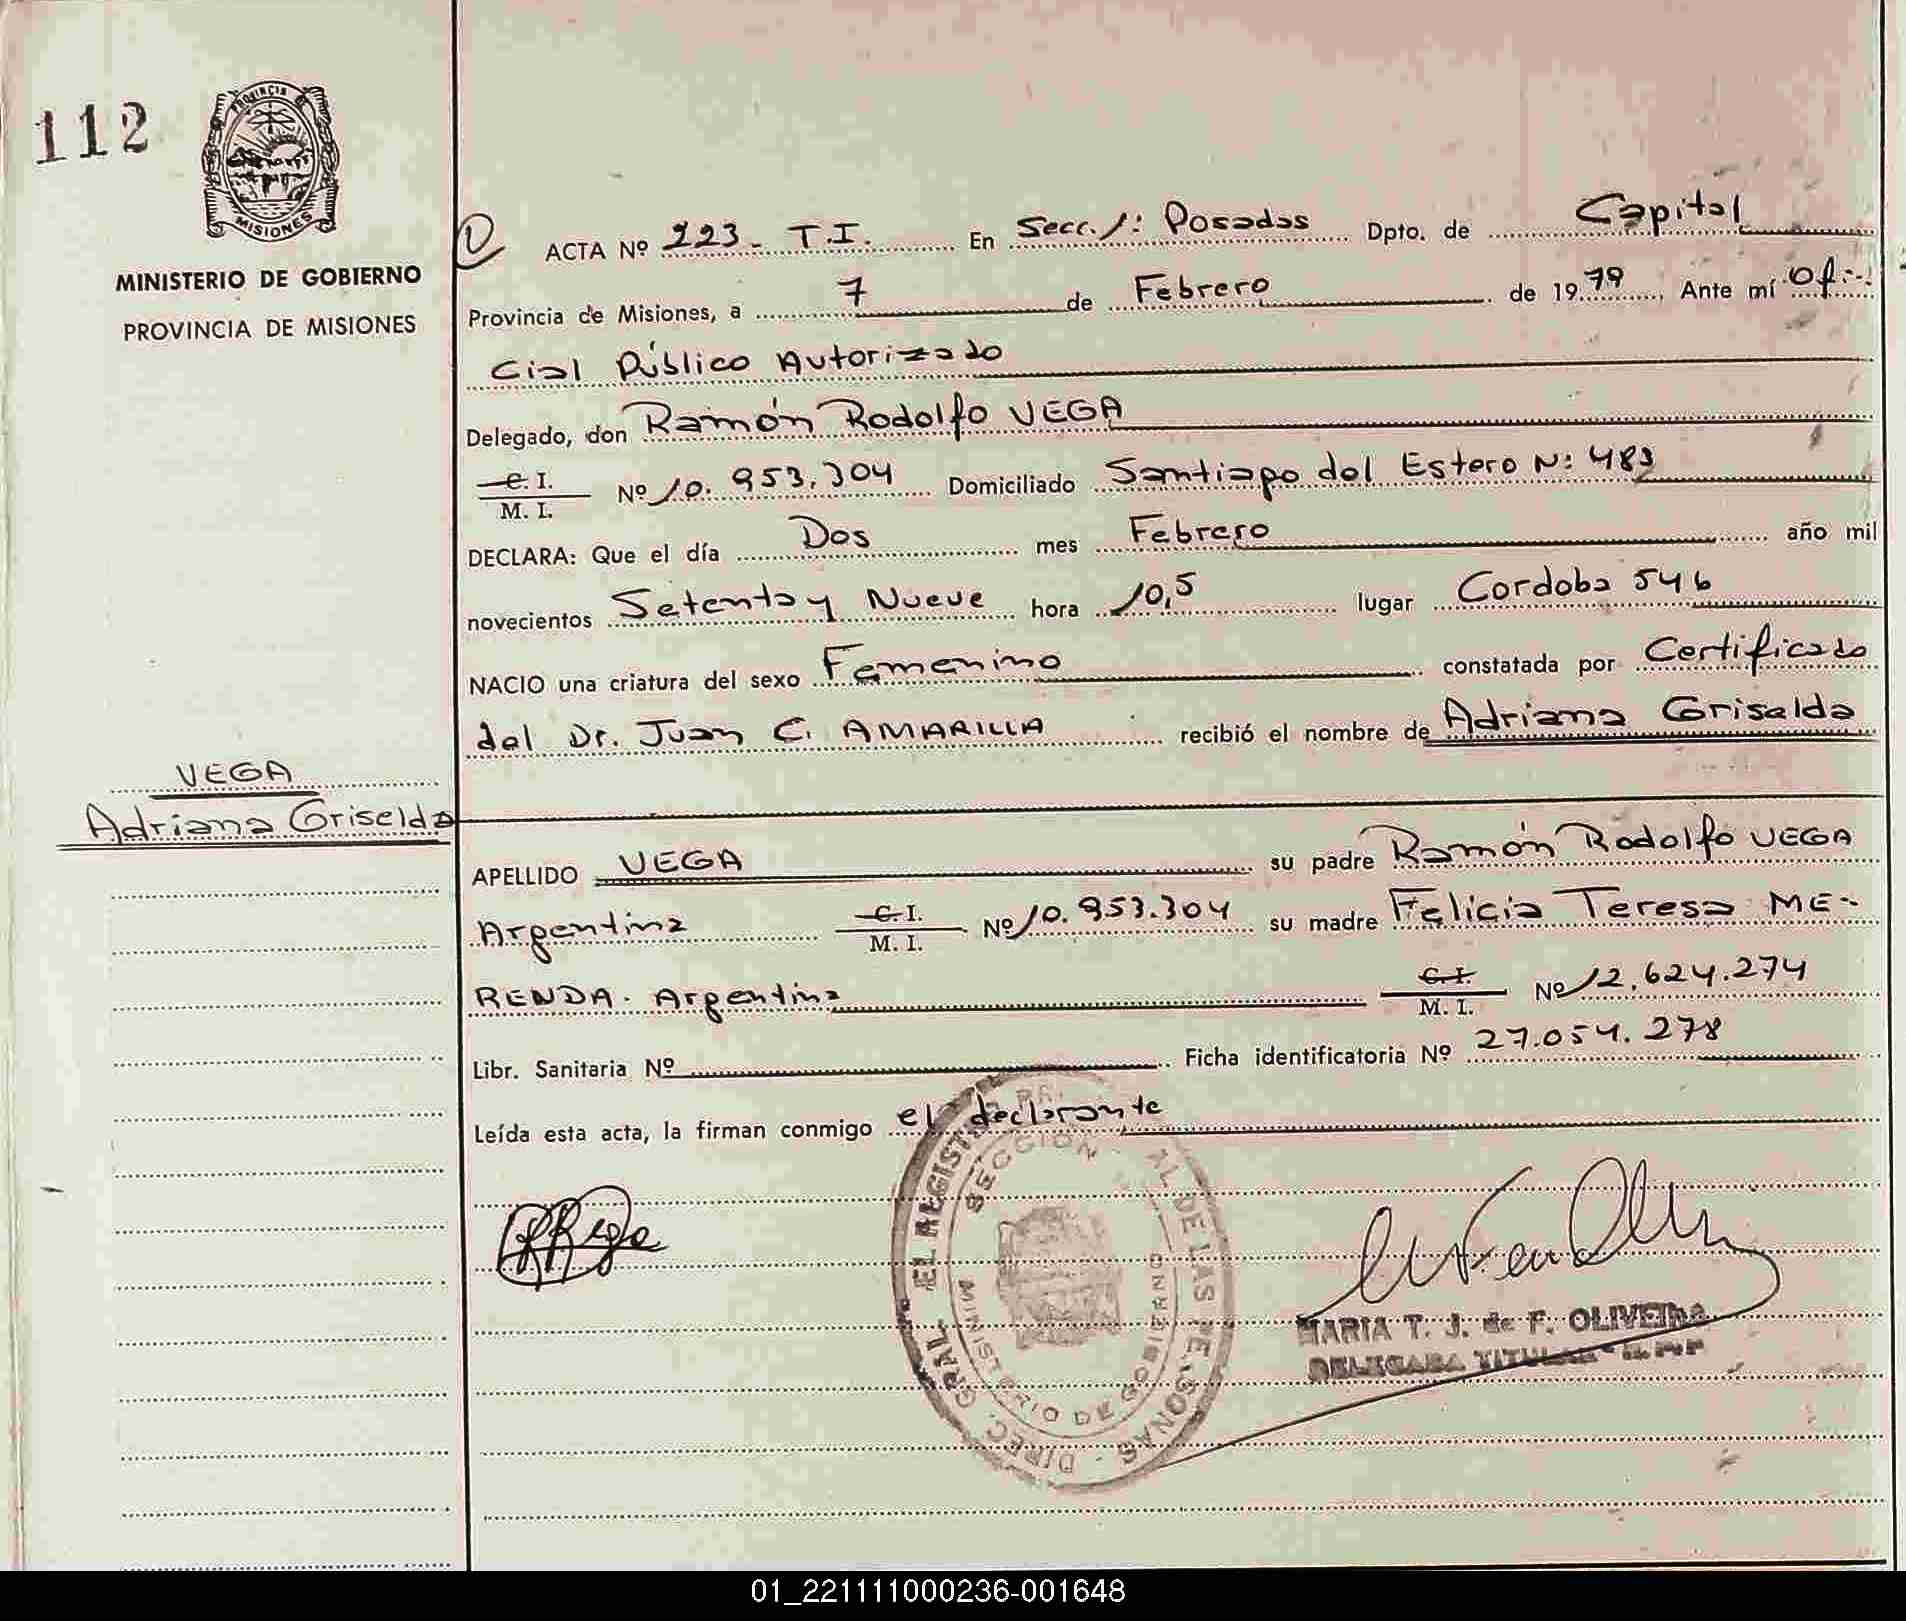 112
PROVINCIA DE
MISIONES
MINISTERIO DE GOBIERNO
PROVINCIA DE MISIONES
VEGA
Adriana Griselda
ACTA Nº 223- T.I. En Secc. 1: Posadas Dpto. de Capital
Provincia de Misiones, a 7 de Febrero de 1979 Ante mí Ofi-
cial Público Autorizado
Delegado, don Ramón Rodolfo VEGA
C. I.
M. I. Nº 10.953.304 Domiciliado Santiago del Estero Nº: 483
DECLARA: Que el día Dos mes Febrero año mil
novecientos Setenta y Nueve hora 10,5 lugar Cordoba 546
NACIO una criatura del sexo Femenino constatada por Certificado
del Dr. Juan C. AMARILLA recibió el nombre de Adriana Griselda
APELLIDO VEGA su padre Ramón Rodolfo VEGA
Argentina C. I.
M. I. Nº 10.953.304 su madre Felicia Teresa ME-
RENDA. Argentina C. I.
M. I. Nº 12.624.274
Libr. Sanitaria Nº Ficha identificatoria Nº 27.054.278
Leída esta acta, la firman conmigo el declarante
DIREC. GRAL. EL REGIST AL DE LAS PE SONAS
SECCION
MINISTERIO DE GOBIERNO
MARIA T. J. de F. OLIVEIRA
DELEGADA TITULAR
01_221111000236-001648